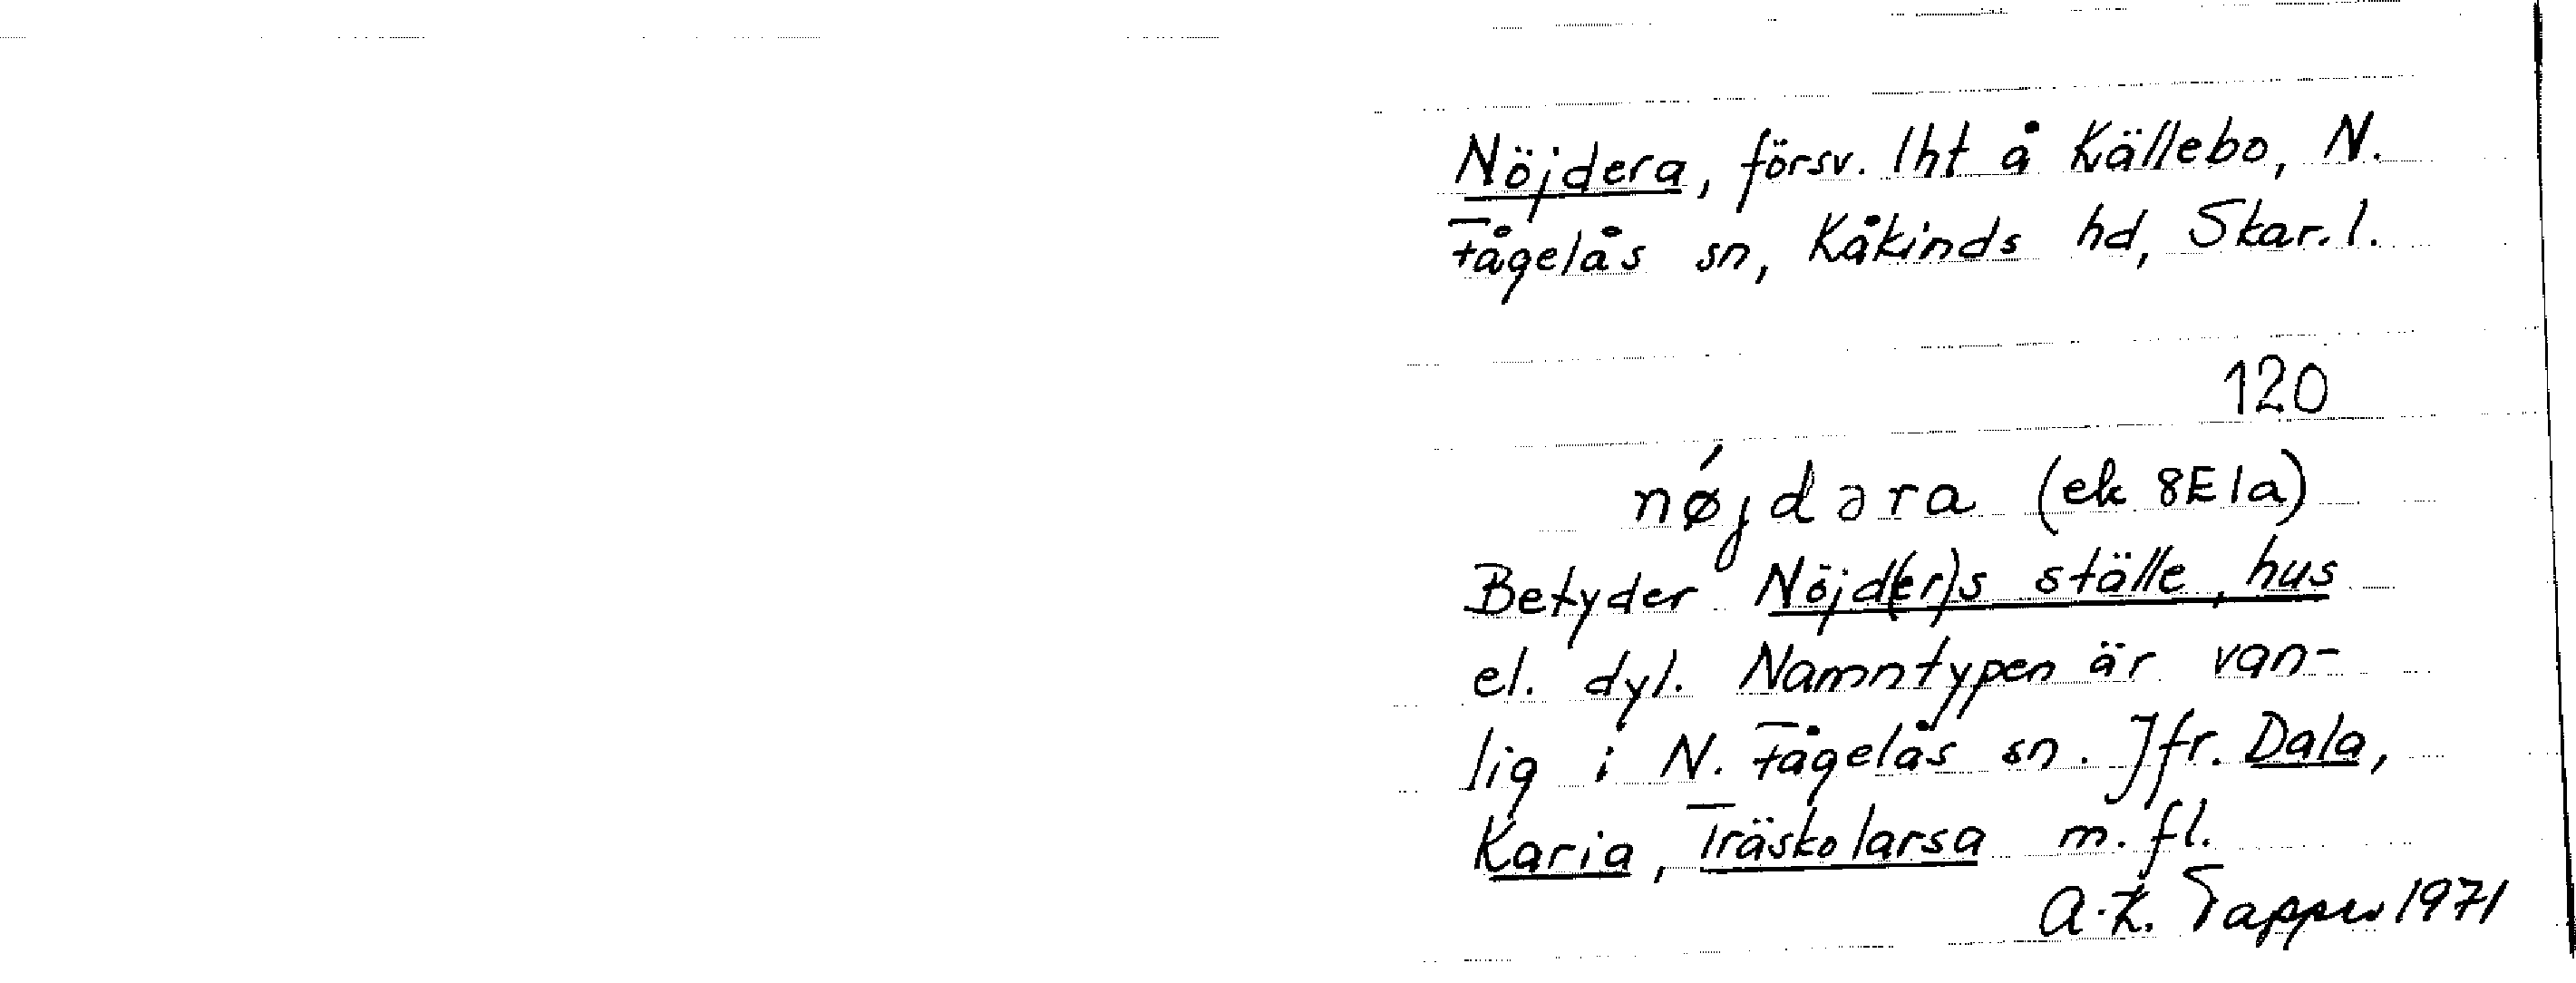 Nöjdera, försv. lht å Källebo, N.
Fågelås sn, Kåkinds hd, Skar. l.
120
nǿjdəra (ek 8E1a)
Betyder Nöjd(er)s ställe, hus
el. dyl. Namntypen är van-
lig i N. Fågelås sn. Jfr. Dala,
Karia, Träskolarsa m. fl.
A.K. Tapper 1971